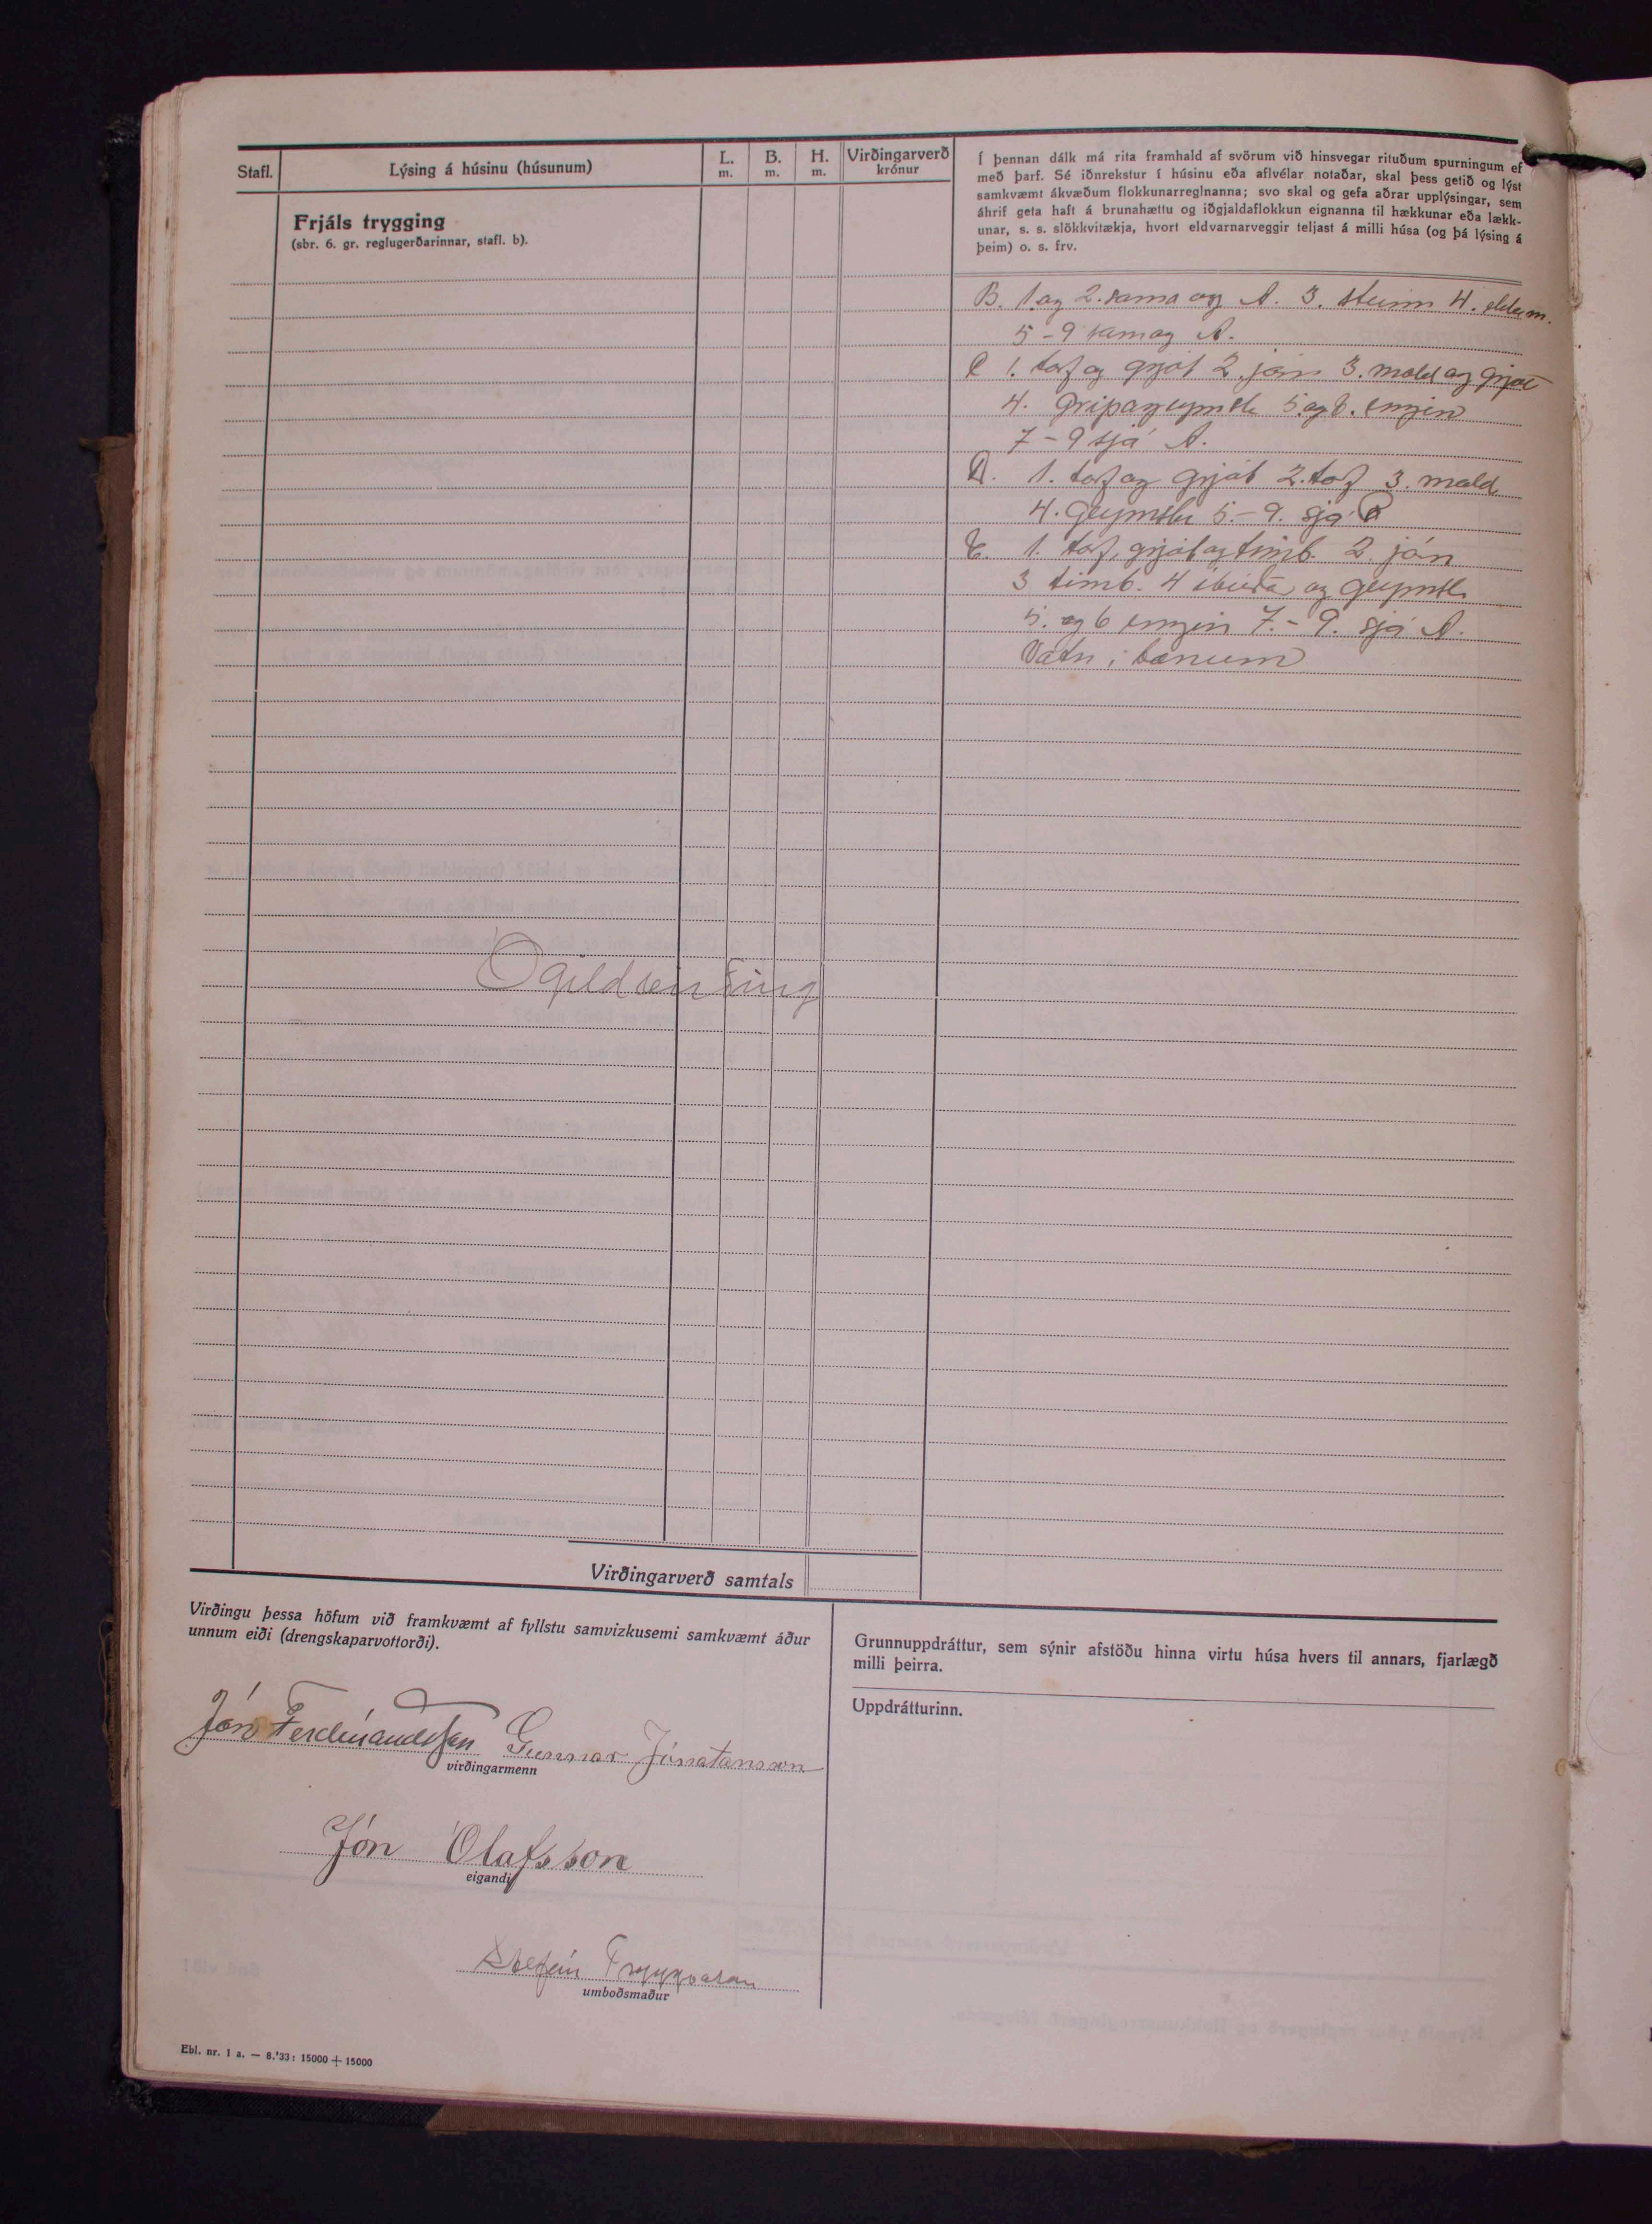 Stafl.
Lýsing á húsinu (húsunum)
L.
m.
B.
m.
H.
m.
Virðingarverð
krónur
Frjáls trygging
(sbr. 6. gr. reglugerðarinnar, stafl. b).
Í þennan dálk má rita framhald af svörum við hinsvegar rituðum spurningum ef
með þarf. Sé iðnrekstur í húsinu eða aflvélar notaðar, skal þess getið og lýst
samkvæmt ákvæðum flokkunarreglnanna; svo skal og gefa aðrar upplýsingar, sem
áhrif geta haft á brunahættu og iðgjaldaflokkun eignanna til hækkunar eða lækk-
unar, s. s. slökkvitækja, hvort eldvarnarveggir teljast á milli húsa (og þá lýsing á
þeim) o. s. frv.
B. 1. og 2. sama og A. 3. steinn 4. eldam.
5-9 sam og A.
C 1. torf og grjót 2. járn 3. mold og grjót
4. Gripageymsla 5. og 6. engin
7-9 sjá A.
D. 1. torf og grjót 2. torf 3. mold
4. Geymsla 5.-9. sjá
E. 1. torf, grjót og timb. 2. járn
3 timb. 4 íbúða og geymsla
5. og 6 engin 7.-9. sjá A.
Vatn í bænum
Ógild virðing
Virðingarverð samtals
Virðingu þessa höfum við framkvæmt af fyllstu samvizkusemi samkvæmt áður
unnum eiði (drengskaparvottorði).
Jón Ferdinandsson Gunnar Jónatansson
virðingarmenn
Jón Ólafsson
eigandi
Stefán Tryggvason
umboðsmaður
Grunnuppdráttur, sem sýnir afstöðu hinna virtu húsa hvers til annars, fjarlægð
milli þeirra.
Uppdrátturinn.
Ebl. nr. 1 a. — 8.'33: 15000 + 15000